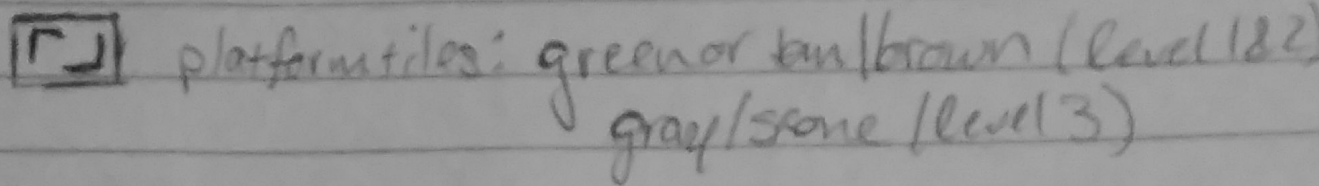 platform tiles: green or tan/brown (level 1&2)
gray/stone (level 3)